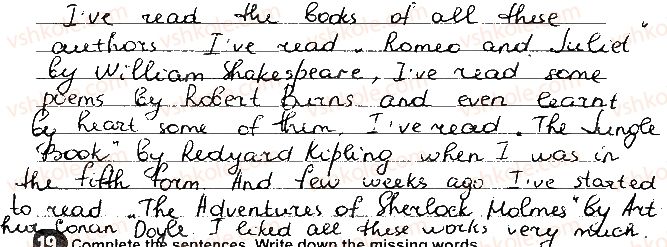 I've read the books of all these
authors. I've read „Romeo and Juliet"
by William Shakespeare, I've read some
poems by Robert Burns and even learnt
by heart some of them, I've read „The Jungle
Book" by Redyard Kipling when I was in
the fifth form. And few weeks ago I've started
to read „The Adventures of Sherlock Holmes" by Art
hur Conan Doyle. I liked all these works very much.
19 Complete the sentences. Write down the missing words